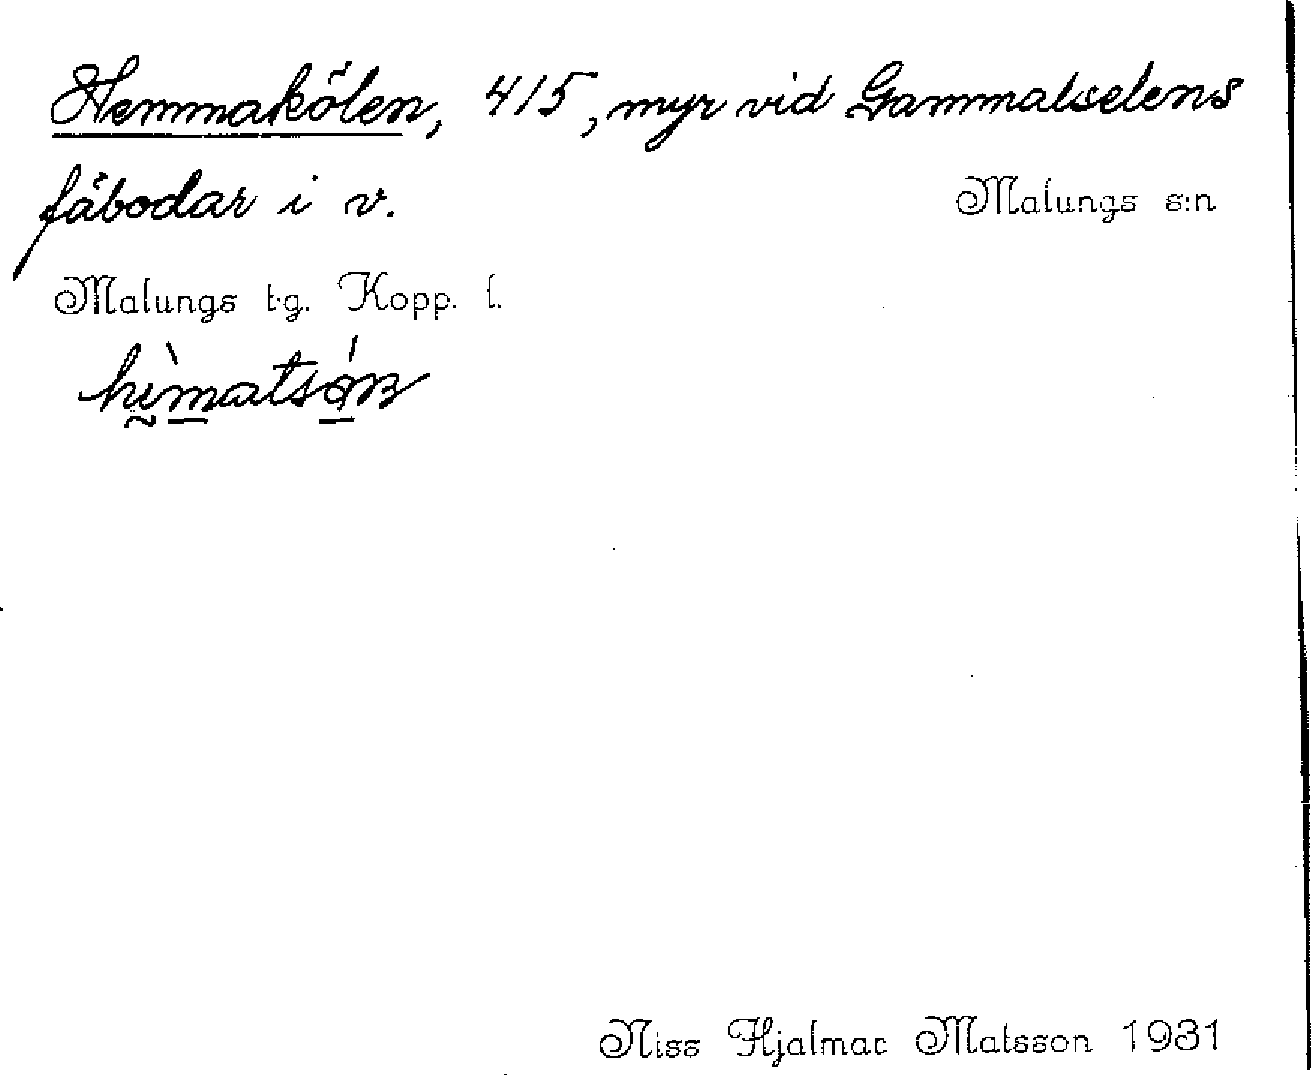 Hemmakölen, 415, myr vid Gammalselens
fäbodar i v.
Malungs s:n
Malungs t.g. Kopp. l.
Niss Hjalmar Matsson 1931